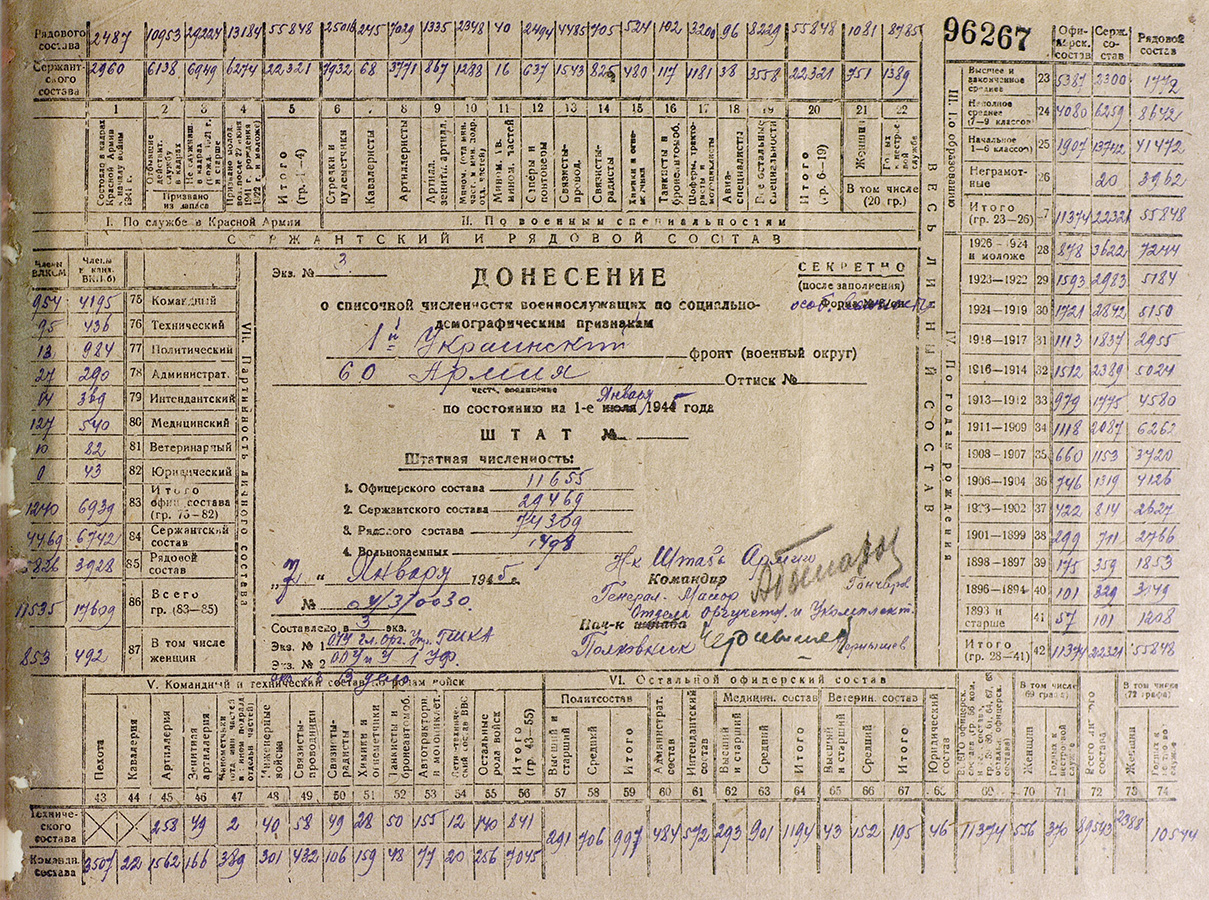 96267
Рядового состава 2487 10953 29224 13184 55848 25018 245 7029 1335 2348 40 2494 4485 705 524 102 3200 96 8229 55848 1081 8785
Сержантского состава 2960 6138 6949 6274 22321 7932 68 3771 867 1288 16 637 1543 825 480 117 1181 38 3558 22321 751 1389
1 2 3 4 5 6 7 8 9 10 11 12 13 14 15 16 17 18 19 20 21 22
Состояло в кадрах Красной Армии к началу войны 1941 г.
Отбывшие действит. службу в кадрах
Не служившие в кадрах
Призвано из запаса
Итого (гр. 1—4)
Стрелки и пулеметчики
Кавалеристы
Артиллеристы
Артил. зенитн. артил.
Саперы и понтонеры
Связисты-провол.
Связисты-радисты
Танкисты и бронеавтомоб.
Авиа-специалисты
Все остальные специальности
Итого (гр. 6—19)
Женщин
В том числе (20 гр.)
I. По службе в Красной Армии
II. По военным специальностям
СЕРЖАНТСКИЙ И РЯДОВОЙ СОСТАВ
ВЕСЬ ЛИЧНЫЙ СОСТАВ
Офицерск. состав Серж. состав Рядовой состав
III. По образованию
Высшее и законченное среднее 23 5387 2300 1772
Неполное среднее (7—9 классов) 24 4080 6259 8642
Начальное 1—6 классов) 25 1907 13742 41472
Неграмотные 26 20 3962
Итого (гр. 23—26) 11374 22321 55848
IV. По годам рождения
1926—1924 и моложе 28 878 3622 7244
1923—1922 29 1593 2983 5184
1924—1919 30 1721 2842 5150
1918—1917 31 1113 1837 2955
1916—1914 32 1512 2389 5024
1913—1912 33 979 1775 4580
1911—1909 34 1118 2087 6262
1908—1907 35 660 1153 3420
1906—1904 36 746 1319 4126
1903—1902 37 422 814 2627
1901—1899 38 299 711 2766
1898—1897 39 175 359 1853
1896—1894 40 101 329 3149
1893 и старше 41 57 101 1208
Итого (гр. 28—41) 42 11374 22321 55848
Члены ВЛКСМ Члены и канд. ВКП(б)
VII. Партийность личного состава
954 4195 75 Командный
95 436 76 Технический
13 984 77 Политический
27 290 78 Администрат.
369 79 Интендантский
127 540 80 Медицинский
10 82 81 Ветеринарный
0 43 82 Юридический
1240 6939 83 Итого офиц. состава (гр. 75—82)
4469 6742 84 Сержантский состав
5826 3928 85 Рядовой состав
11535 17609 86 Всего (гр. 83—85)
853 492 87 В том числе женщин
Экз. № 3
СЕКРЕТНО
(после заполнения)
ДОНЕСЕНИЕ
о списочной численности военнослужащих по социально-
демографическим признакам
1й Украинский фронт (военный округ)
60 Армия Оттиск №
часть, соединение
по состоянию на 1-е января 1945 года
ШТАТ №
Штатная численность:
1. Офицерского состава 11655
2. Сержантского состава 29469
3. Рядового состава 74309
4. Вольнонаемных 1498
„7“ Января 1945 г.
№ 04/3/0030
Составлено в 3 экз.
Экз. № 1 ОУУ гл. орг. Упр. ГШКА
Экз. № 2 ООУ и У 1 УФ.
экз № 3 дело
Н-к Штаба Армии
Командир
Генерал-Майор Гончаров
Отдела Оргучета и Укомплект.
Нач-к штаба
Полковник Чернышев
V. Командный и технический состав по родам войск
VI. Остальной офицерский состав
Пехота
Кавалерия
Артиллерия
Зенитная артиллерия
Инженерные войска
Связисты-проводники
Связисты-радисты
Химики и огнеметчики
Танкисты и бронеавтомоб.
Остальные рода войск
Итого (гр. 43—55)
Политсостав
Высший и старший
Средний
Итого
Администрат. состав
Интендантский состав
Медицинск. состав
Высший и старший
Средний
Итого
Ветерин. состав
Высший и старший
Средний
Итого
Юридический состав
В том числе (69 графа)
Женщин
Всего личного состава
В том числе (72 графа)
Женщин
43 44 45 46 47 48 49 50 51 52 53 54 55 56 57 58 59 60 61 62 63 64 65 66 67 68 69 70 71 72 73 74
Технического состава 258 49 2 40 58 49 28 50 155 12 140 841
291 706 997 484 572 293 901 1194 43 152 195 46 11374 556 370 89543 2388 10544
Командн. состава 3507 22 1562 166 389 301 432 106 159 48 77 20 256 7045